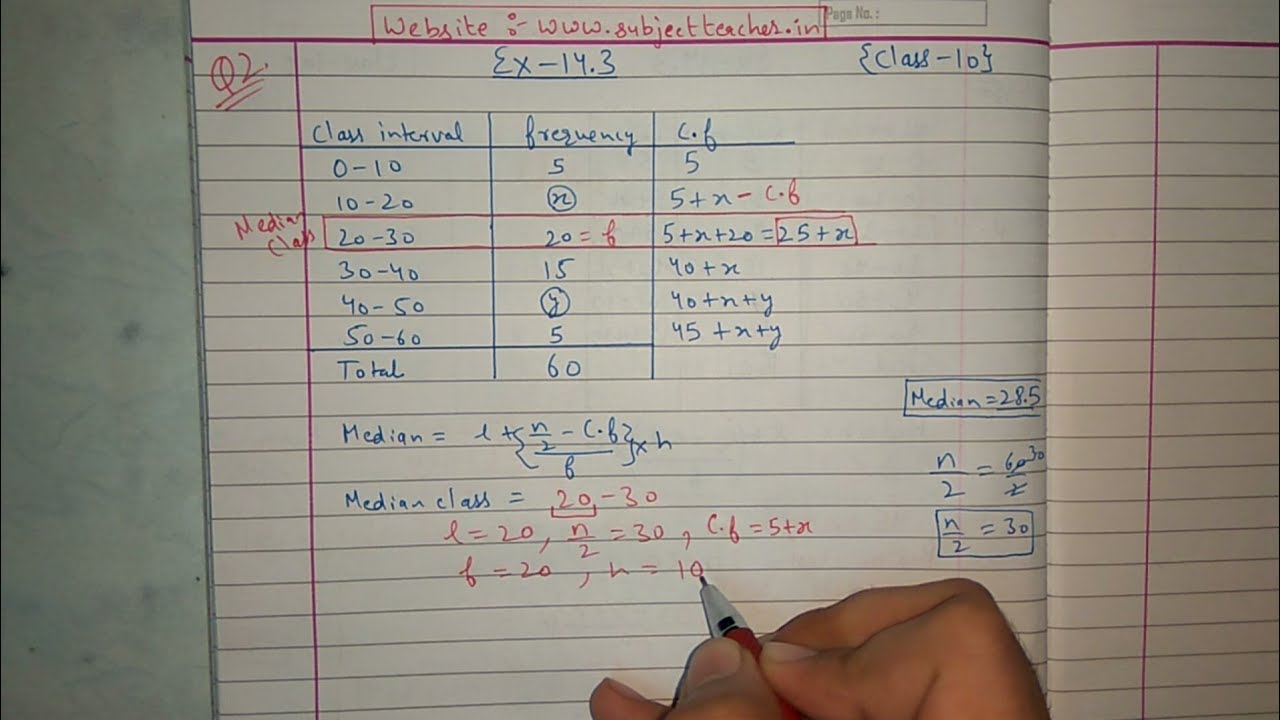 Website :- www.subjectteacher.in
Page No.:
Q2.
Ex-14.3
{Class-10}
Class interval frequency C.f
0-10 5 5
10-20 x 5+x - C.f
Median Class
20-30 20=f 5+x+20=25+x
30-40 15 40+x
40-50 y 40+x+y
50-60 5 45+x+y
Total 60
Median=28.5
Median = l+{n/2-C.f/f}×h
n/2=60/2 30
Median class = 20-30
l=20, n/2=30, C.f=5+x
n/2=30
f=20, h=10